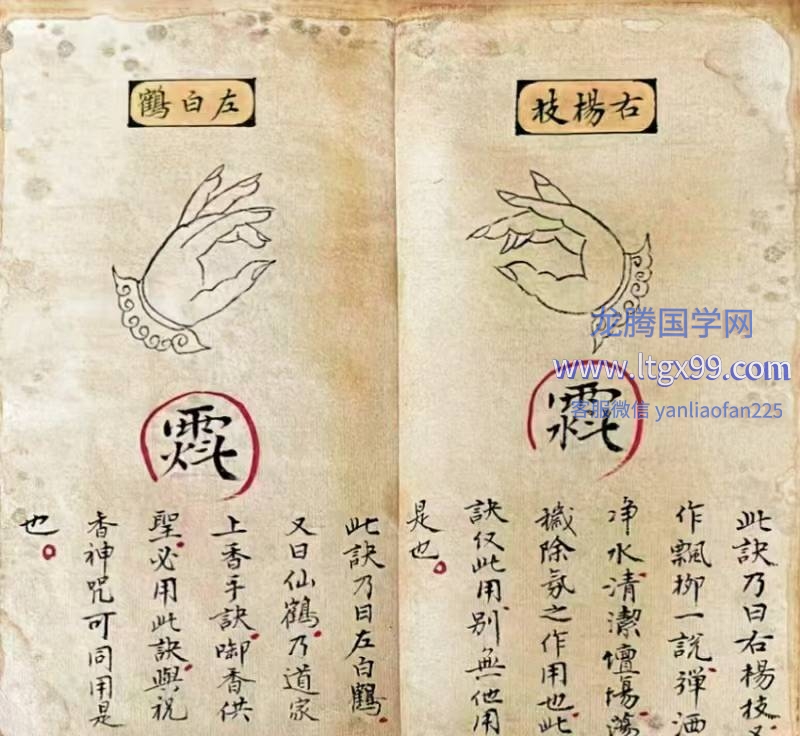 右楊枝
此訣乃曰右楊枝又
作飄柳一説彈洒
净水清潔壇場蕩
穢除氛之作用也此
訣仅此用别無他用
是也
左白鶴
此訣乃曰左白鶴
又曰仙鶴乃道家
上香手訣啣香供
聖必用此訣與祝
香神咒可同用是
也
龙腾国学网
www.ltgx99.com
客服微信 yanliaofan225